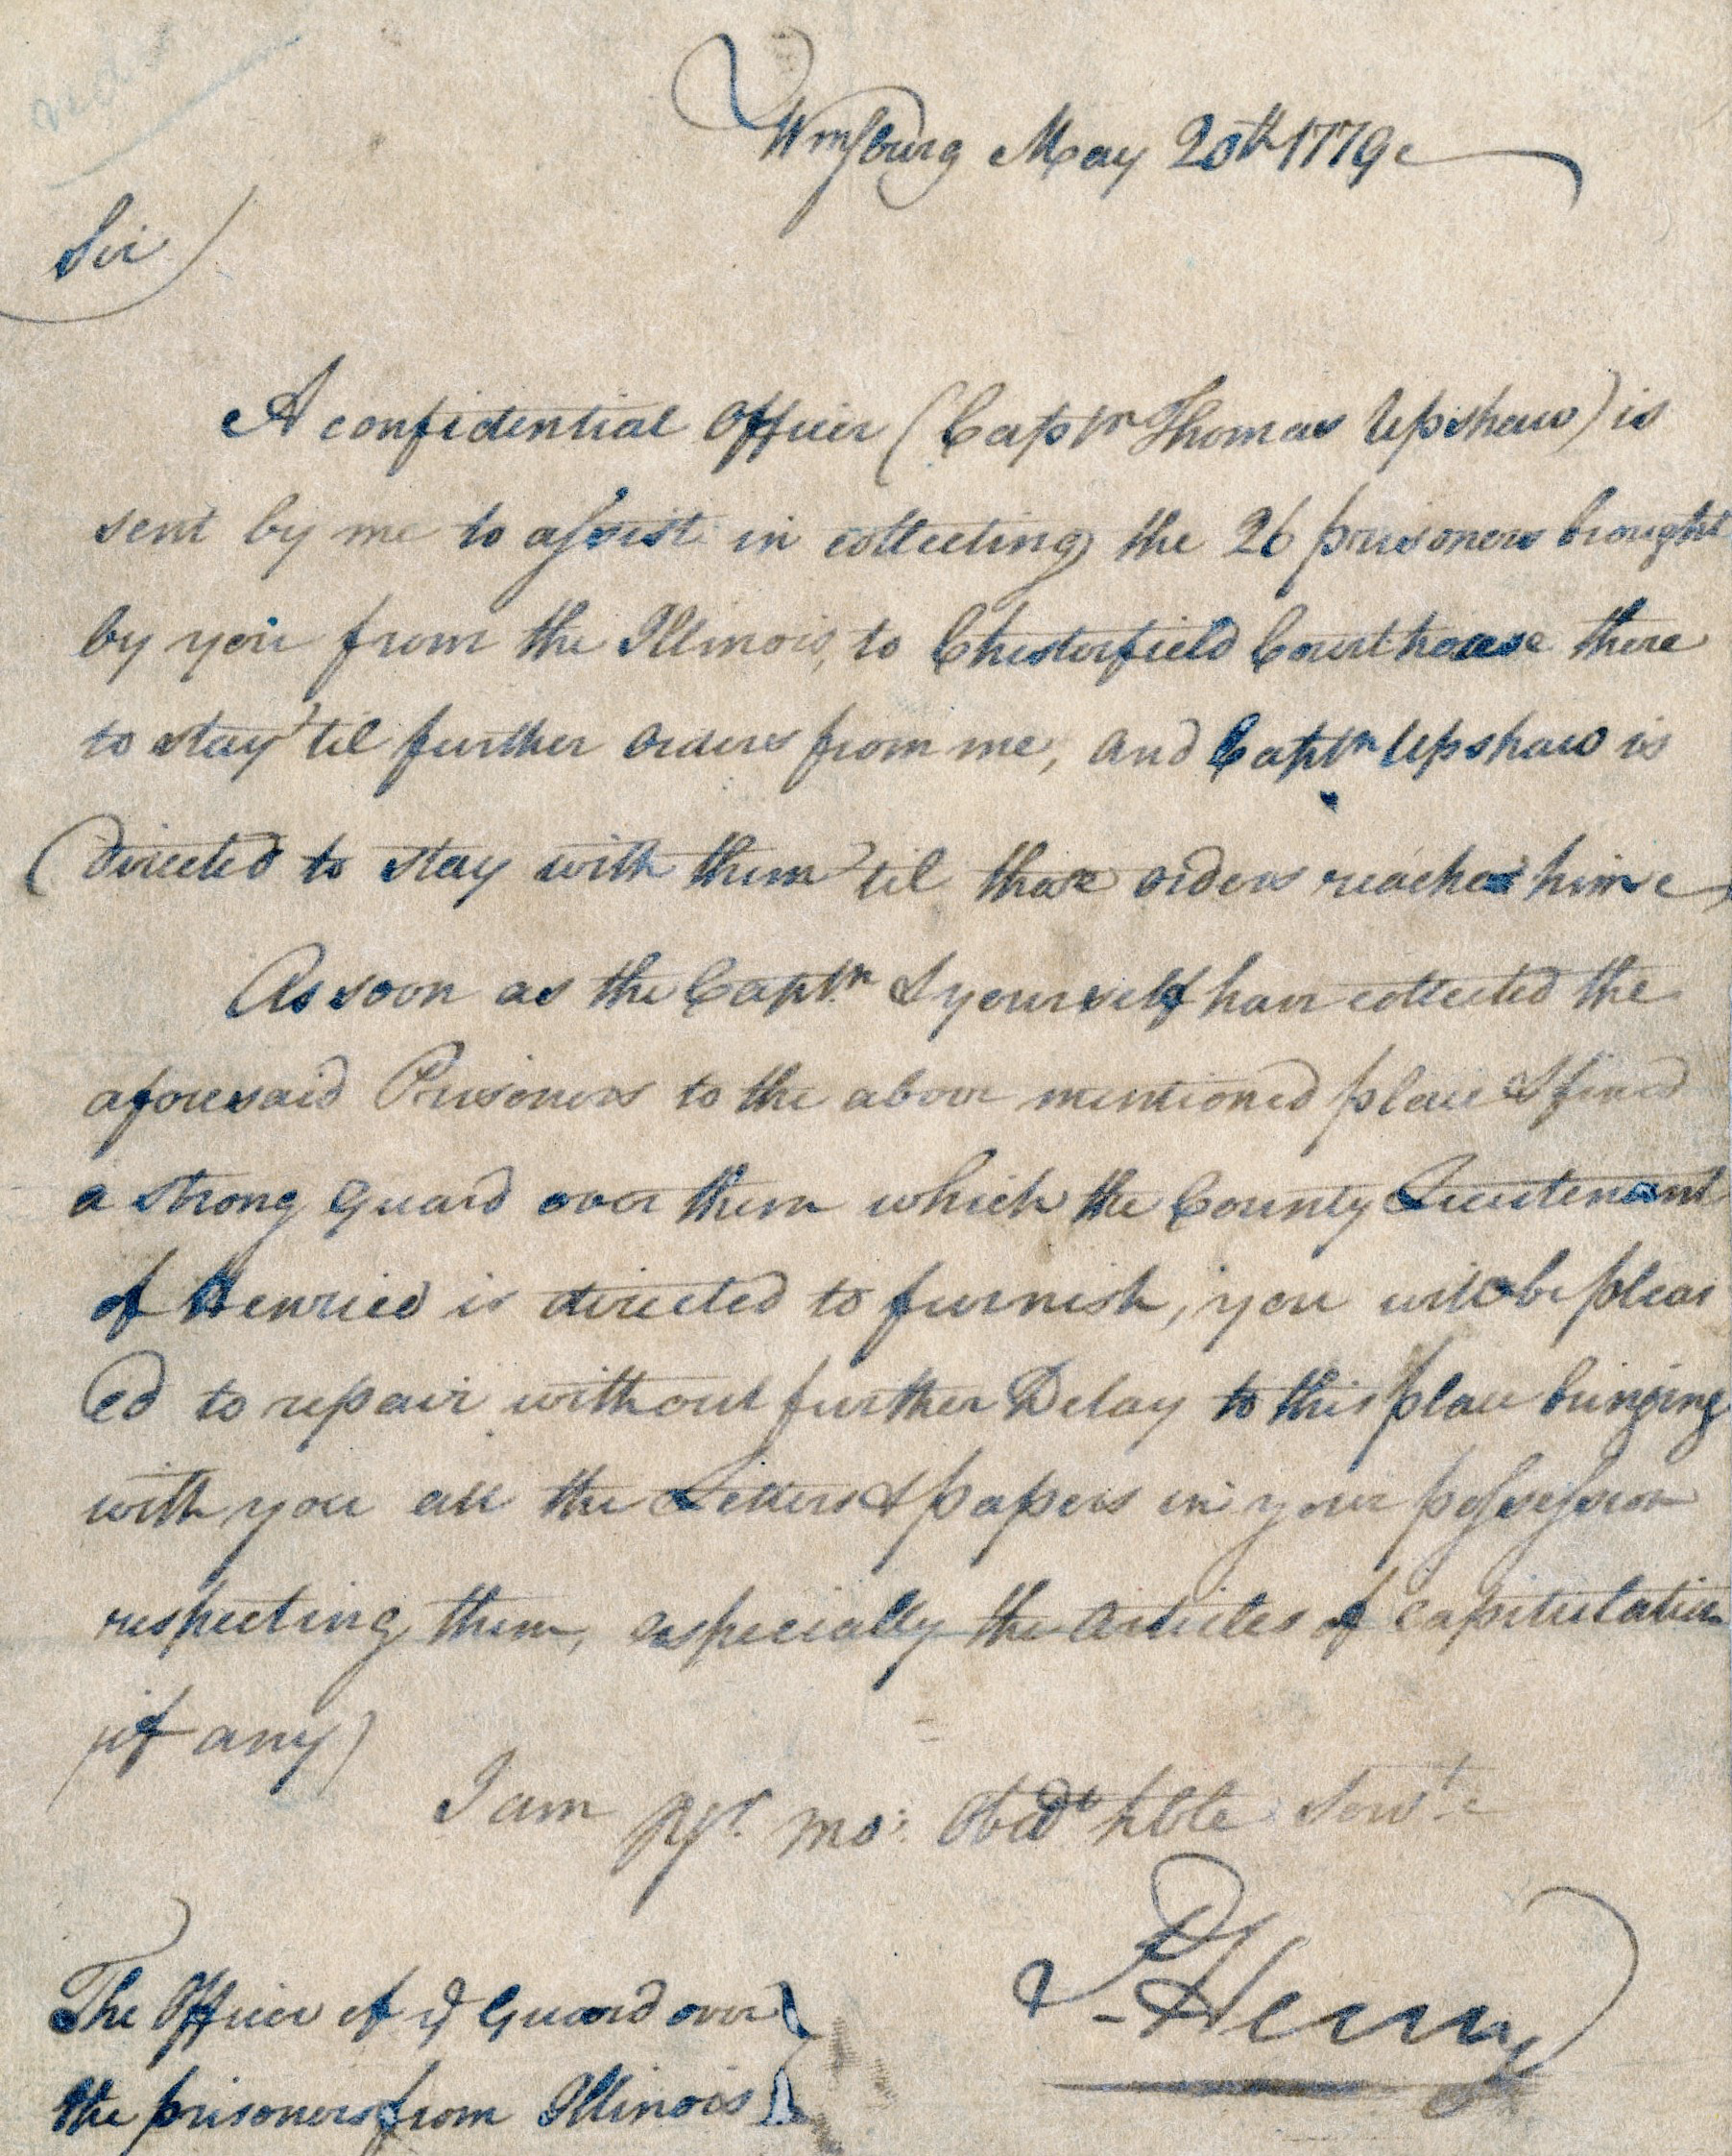 Wmsburg May 20th 1779
Sir
A confidential Officer (Captn Thomas Upshaw) is
sent by me to assist in collecting the 26 prisoners brought
by you from the Illinois, to Chesterfield Courthouse there
to stay 'til further orders from me, and Captn Upshaw is
directed to stay with them 'til those orders reaches him
As soon as the Captn & yourself have collected the
aforesaid Prisoners to the above mentioned place & fixed
a strong Guard over them which the County Lieutenant
of Henrico is directed to furnish, you will be pleas
ed to repair without further Delay to this place bringing
with you all the Letters & papers in your possession
respecting them, especially the Articles of Capitulation
(if any)
I am Yr. mo: Obdt hble Servt
P Henry
The Officer of ye Guard over
the prisoners from Illinois